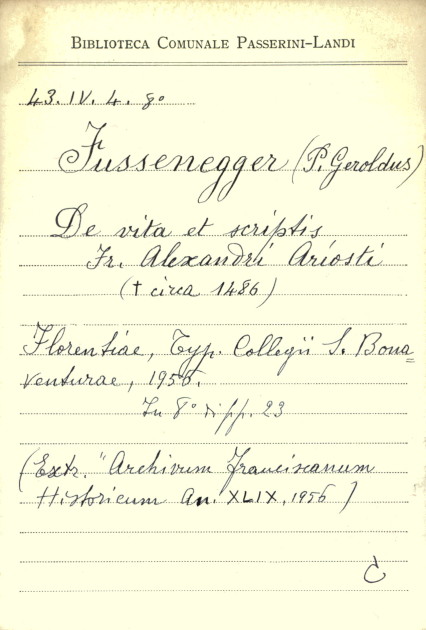 BIBLIOTECA COMUNALE PASSERINI-LANDI
43. IV. 4. 8º
Fussenegger (P. Geroldus)
De vita et scriptis
Fr. Alexandri Ariosti
(† circa 1486)
Florentiae, Typ. Collegii S. Bona=
venturae, 1956.
In 8º di pp. 23
(Extr. "Archivum Franciscanum
Historicum An. XLIX, 1956)
C